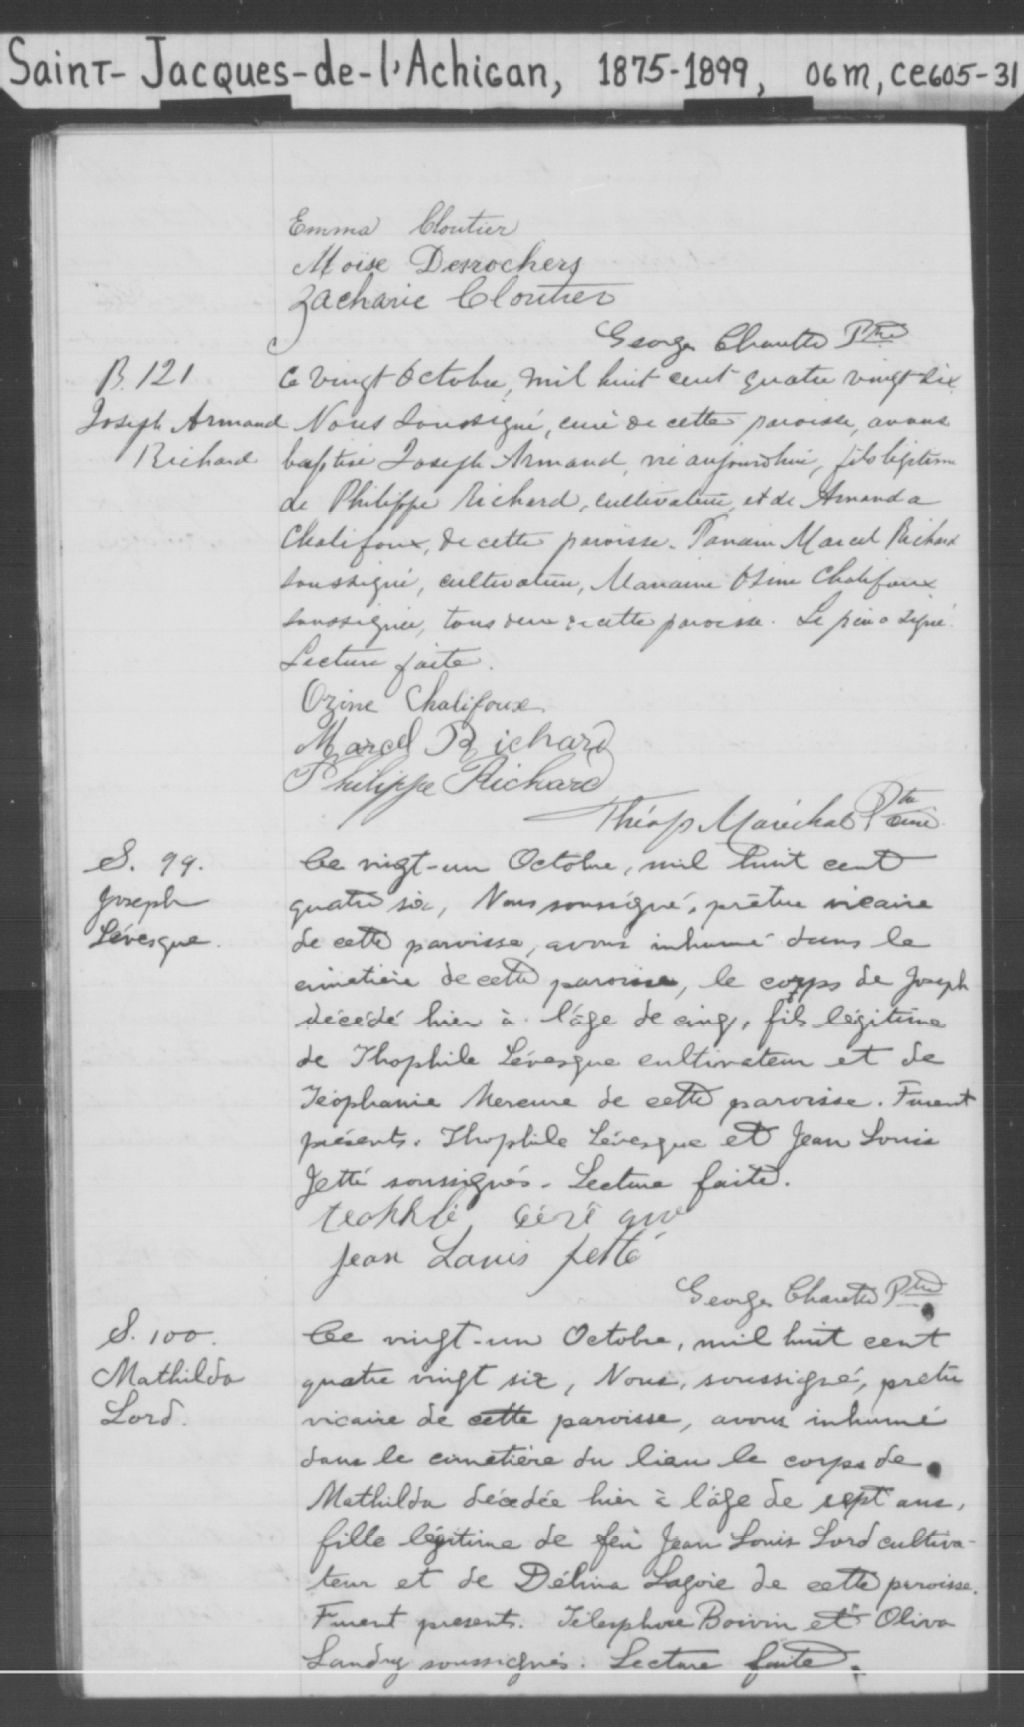 Saint-Jacques-de-l'Achigan, 1875-1899, 06M, CE605-31
Emma Cloutier
Moise Desrochers
Zacharie Cloutier
George Charette Ptre
B. 121
Joseph Armand
Richard
Ce vingt Octobre, mil huit cent quatre vingt six
Nous soussigné, curé de cette paroisse, avons
baptisé Joseph Armand, né aujourd'hui, fils légitime
de Philippe Richard, cultivateur, et de Amanda
Chalifoux, de cette paroisse. Parrain Marcel Richard
soussigné, cultivateur, Marraine Ozine Chalifoux
soussignée, tous deux de cette paroisse. Le père a signé.
Lecture faite.
Ozine Chalifoux
Marcel Richard
Philippe Richard
Théop Maréchal Ptre curé
S. 99.
Joseph
Lévesque.
Ce vingt-un Octobre, mil huit cent
quatre six, Nous soussigné, prêtre vicaire
de cette paroisse, avons inhumé dans le
cimetière de cette paroisse, le corps de Joseph
décédé hier à l'âge de cinq, fils légitime
de Thophile Lévesque cultivateur et de
Téophanie Mercure de cette paroisse. Furent
présents. Thophile Lévesque et Jean Louis
Jetté soussignés. Lecture faite.
Jean Louis Jetté
George Charette Ptre
S. 100.
Mathilda
Lord.
Ce vingt-un Octobre, mil huit cent
quatre vingt six, Nous, soussigné, prêtre
vicaire de cette paroisse, avons inhumé
dans le cimetière du lieu le corps de
Mathilda décédée hier à l'âge de sept ans,
fille légitime de feu Jean Louis Lord cultiva-
teur et de Délina Lagoie de cette paroisse.
Furent présents. Télesphore Boivin et Oliva
Landry soussignés. Lecture faite.